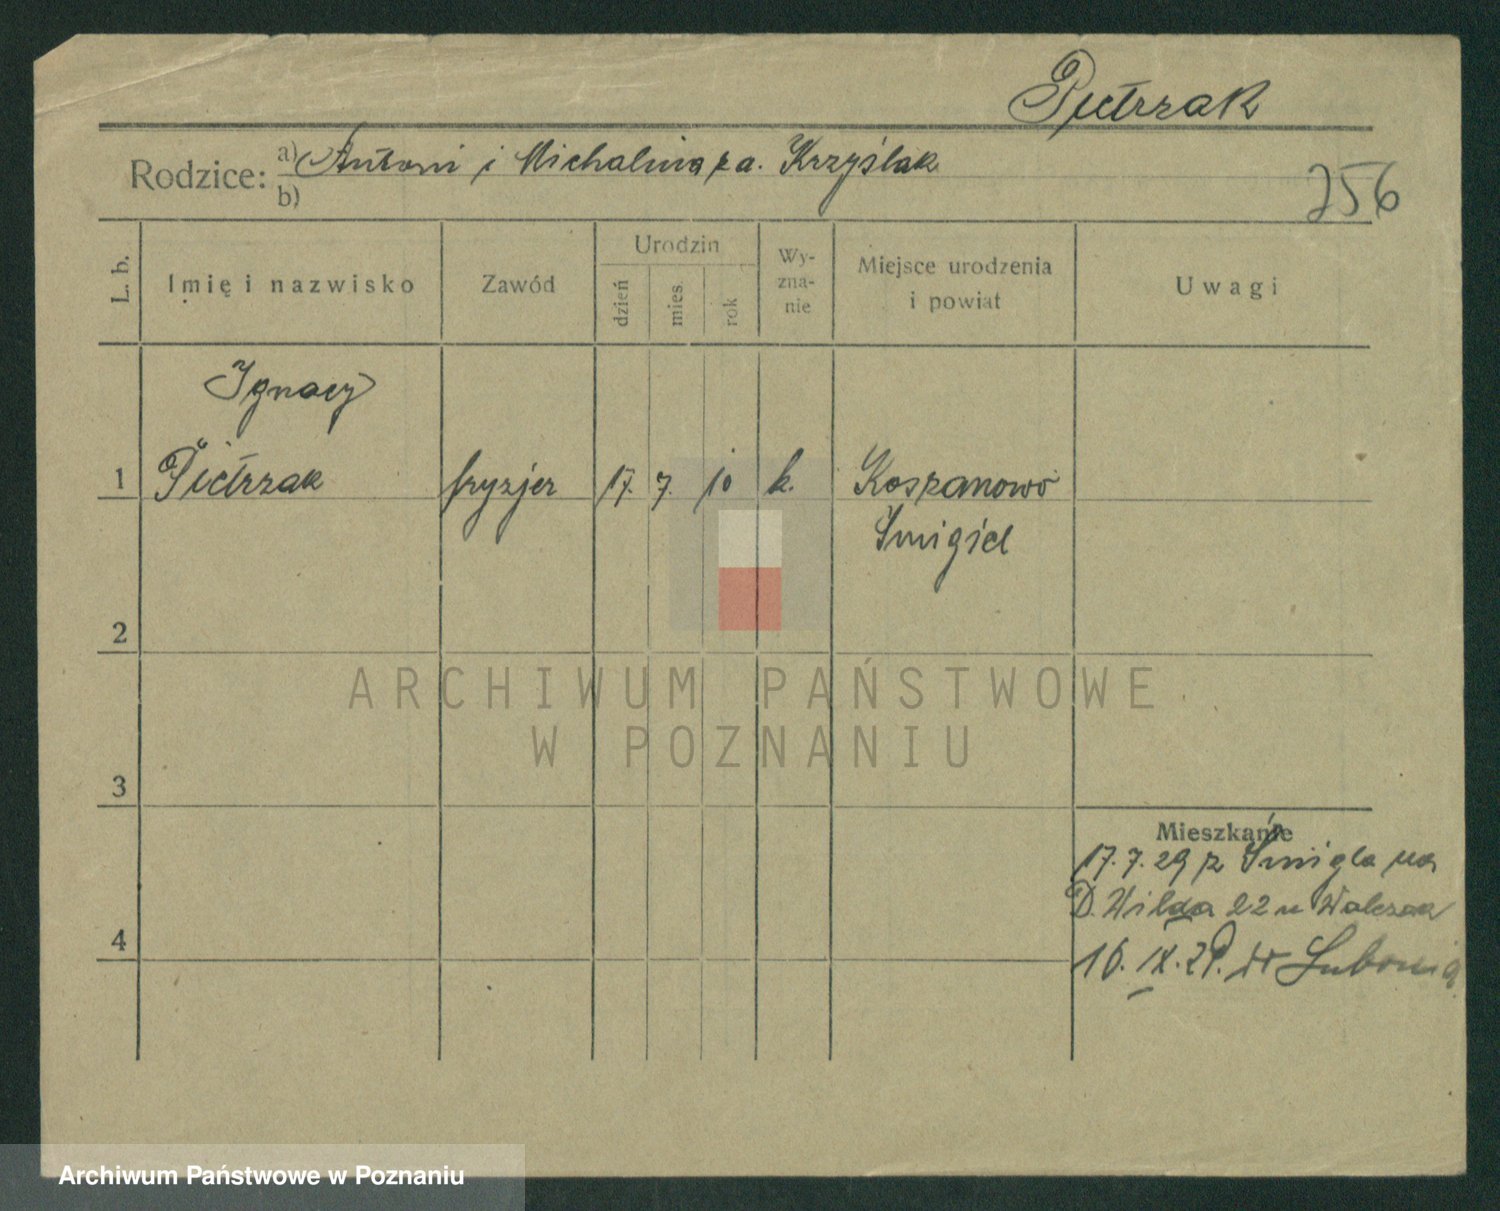 Pietrzak
Rodzice: a) Antoni i Michalina z d. Krzyślak
b)
256
L. b.
Imię i nazwisko
Zawód
Urodzin
dzień
mies.
rok
Wy-
zna-
nie
Miejsce urodzenia
i powiat
Uwagi
Ignacy
1 Pietrzak fryzjer 17. 7. 10 k. Koszanowo
Śmigiel
2
ARCHIWUM PAŃSTWOWE
W POZNANIU
3
Mieszkanie
17.7.29 z Śmigla na
D. Wilda 22 u Walczak
4
16. IX. 29. do Lubonia
Archiwum Państwowe w Poznaniu